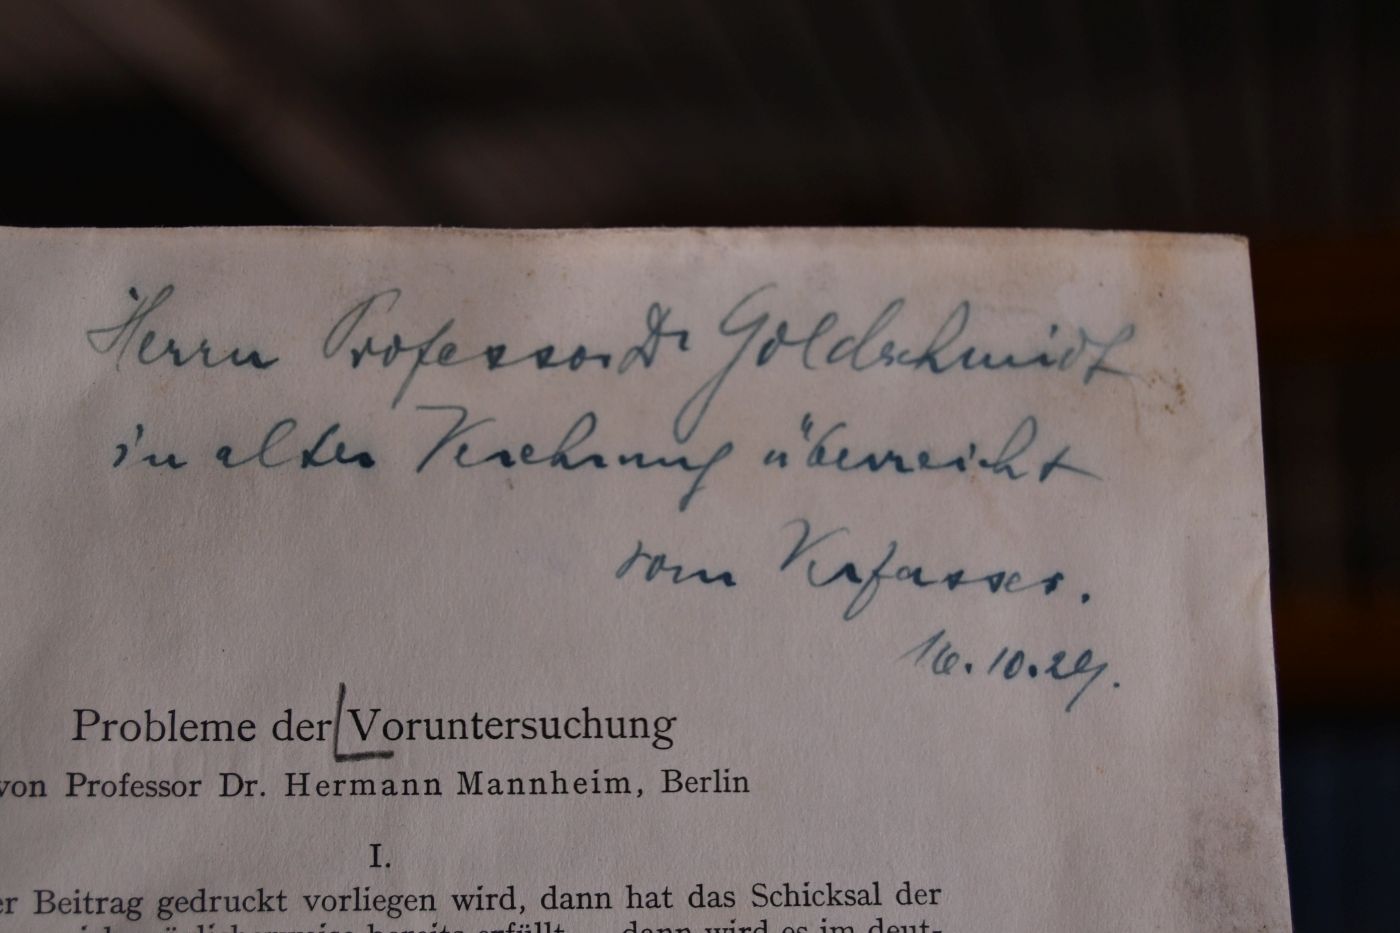 Herrn Professor Dr Goldschmidt
in alter Verehrung überreicht
vom Verfasser.
16.10.29.
Probleme der Voruntersuchung
von Professor Dr. Hermann Mannheim, Berlin
I.
er Beitrag gedruckt vorliegen wird, dann hat das Schicksal der
bereits erfüllt dann wird es im deut-